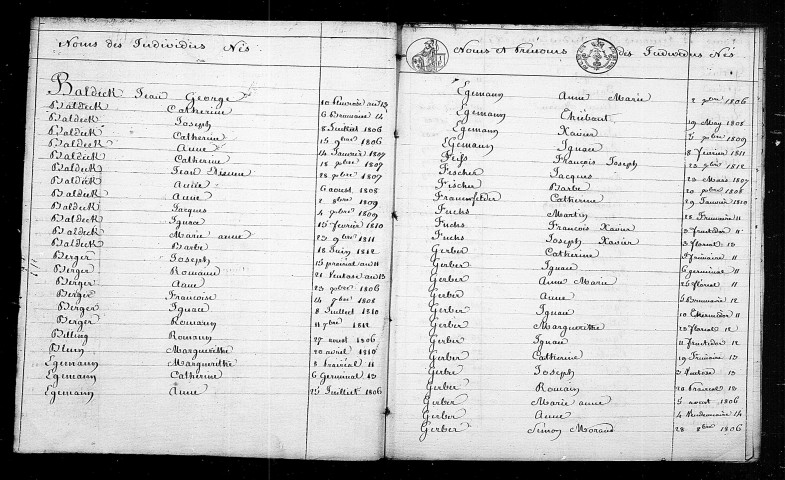 Noms des Individus Nés
Baldeck Jean George 10 Pluviose an 13
Baldeck Catherine 6 Brumaire 14
Baldeck Joseph 8 Juillet 1806
Baldeck Catherine 15 9bre 1806
Baldeck Anne 14 Janvier 1807
Baldeck Catherine 18 9bre 1807
Baldeck Jean 28 9bre 1807
Baldeck 6 aoust 1808
Baldeck Anne 2 8bre 1809
Baldeck Jacques 4 9bre 1809
Baldeck Ignace 15 février 1810
Baldeck Marie anne 23 9bre 1811
Baldeck Barbe 18 Juin 1812
Berger Joseph 15 prairial an 11
Berger Romain 21 Ventose an 13
Berger Anne 23 9bre 1806
Berger Francoise 24 9bre 1808
Berger Ignace 8 Juillet 1810
Berger Romain 11 7bre 1812
Billing Romain 27 aoust 1806
Blein Marguerithe 20 avril 1810
Egemann Marguerithe 8 Prairéal 11
Egemann Catherine 6 Germinal 13
Egemann Anne 25 Juillet 1806
Noms et Prénoms des Individus Nés
Egemann Anne Marie 2 9bre 1806
Egemann Thiébaut 19 May 1808
Egemann Xavier 1809
Egemann Ignace 8 Février 1811
Feiss François Joseph 23 9bre 1812
Fischer Jacques 20 Mars 1807
Fischer Barbe 20 9bre 1808
Frauenfelder Catherine 29 Janvier 1810
Fuchs Martin 28 Frimaire 11
Fuchs François Xavier 3 fructidor 11
Fuchs Joseph Xavier 3 floreal 13
Gerber Catherine Frimaire 11
Gerber Ignace 6 germinal 11
Gerber Anne Marie 25 floreal 11
Gerber Anne 5 Brumaire 12
Gerber Ignace 10 thermidor 11
Gerber Marguerithe 20 floréal 12
Gerber Ignace 11 fructidor 12
Gerber Catherine 19 Frimaire 13
Gerber Joseph 3 13
Gerber Romain 20 Prairéal 13
Gerber Marie anne 5 aoust 1806
Gerber Anne 4 Vendemiaire 14
Gerber Simon Morand 28 8bre 1806